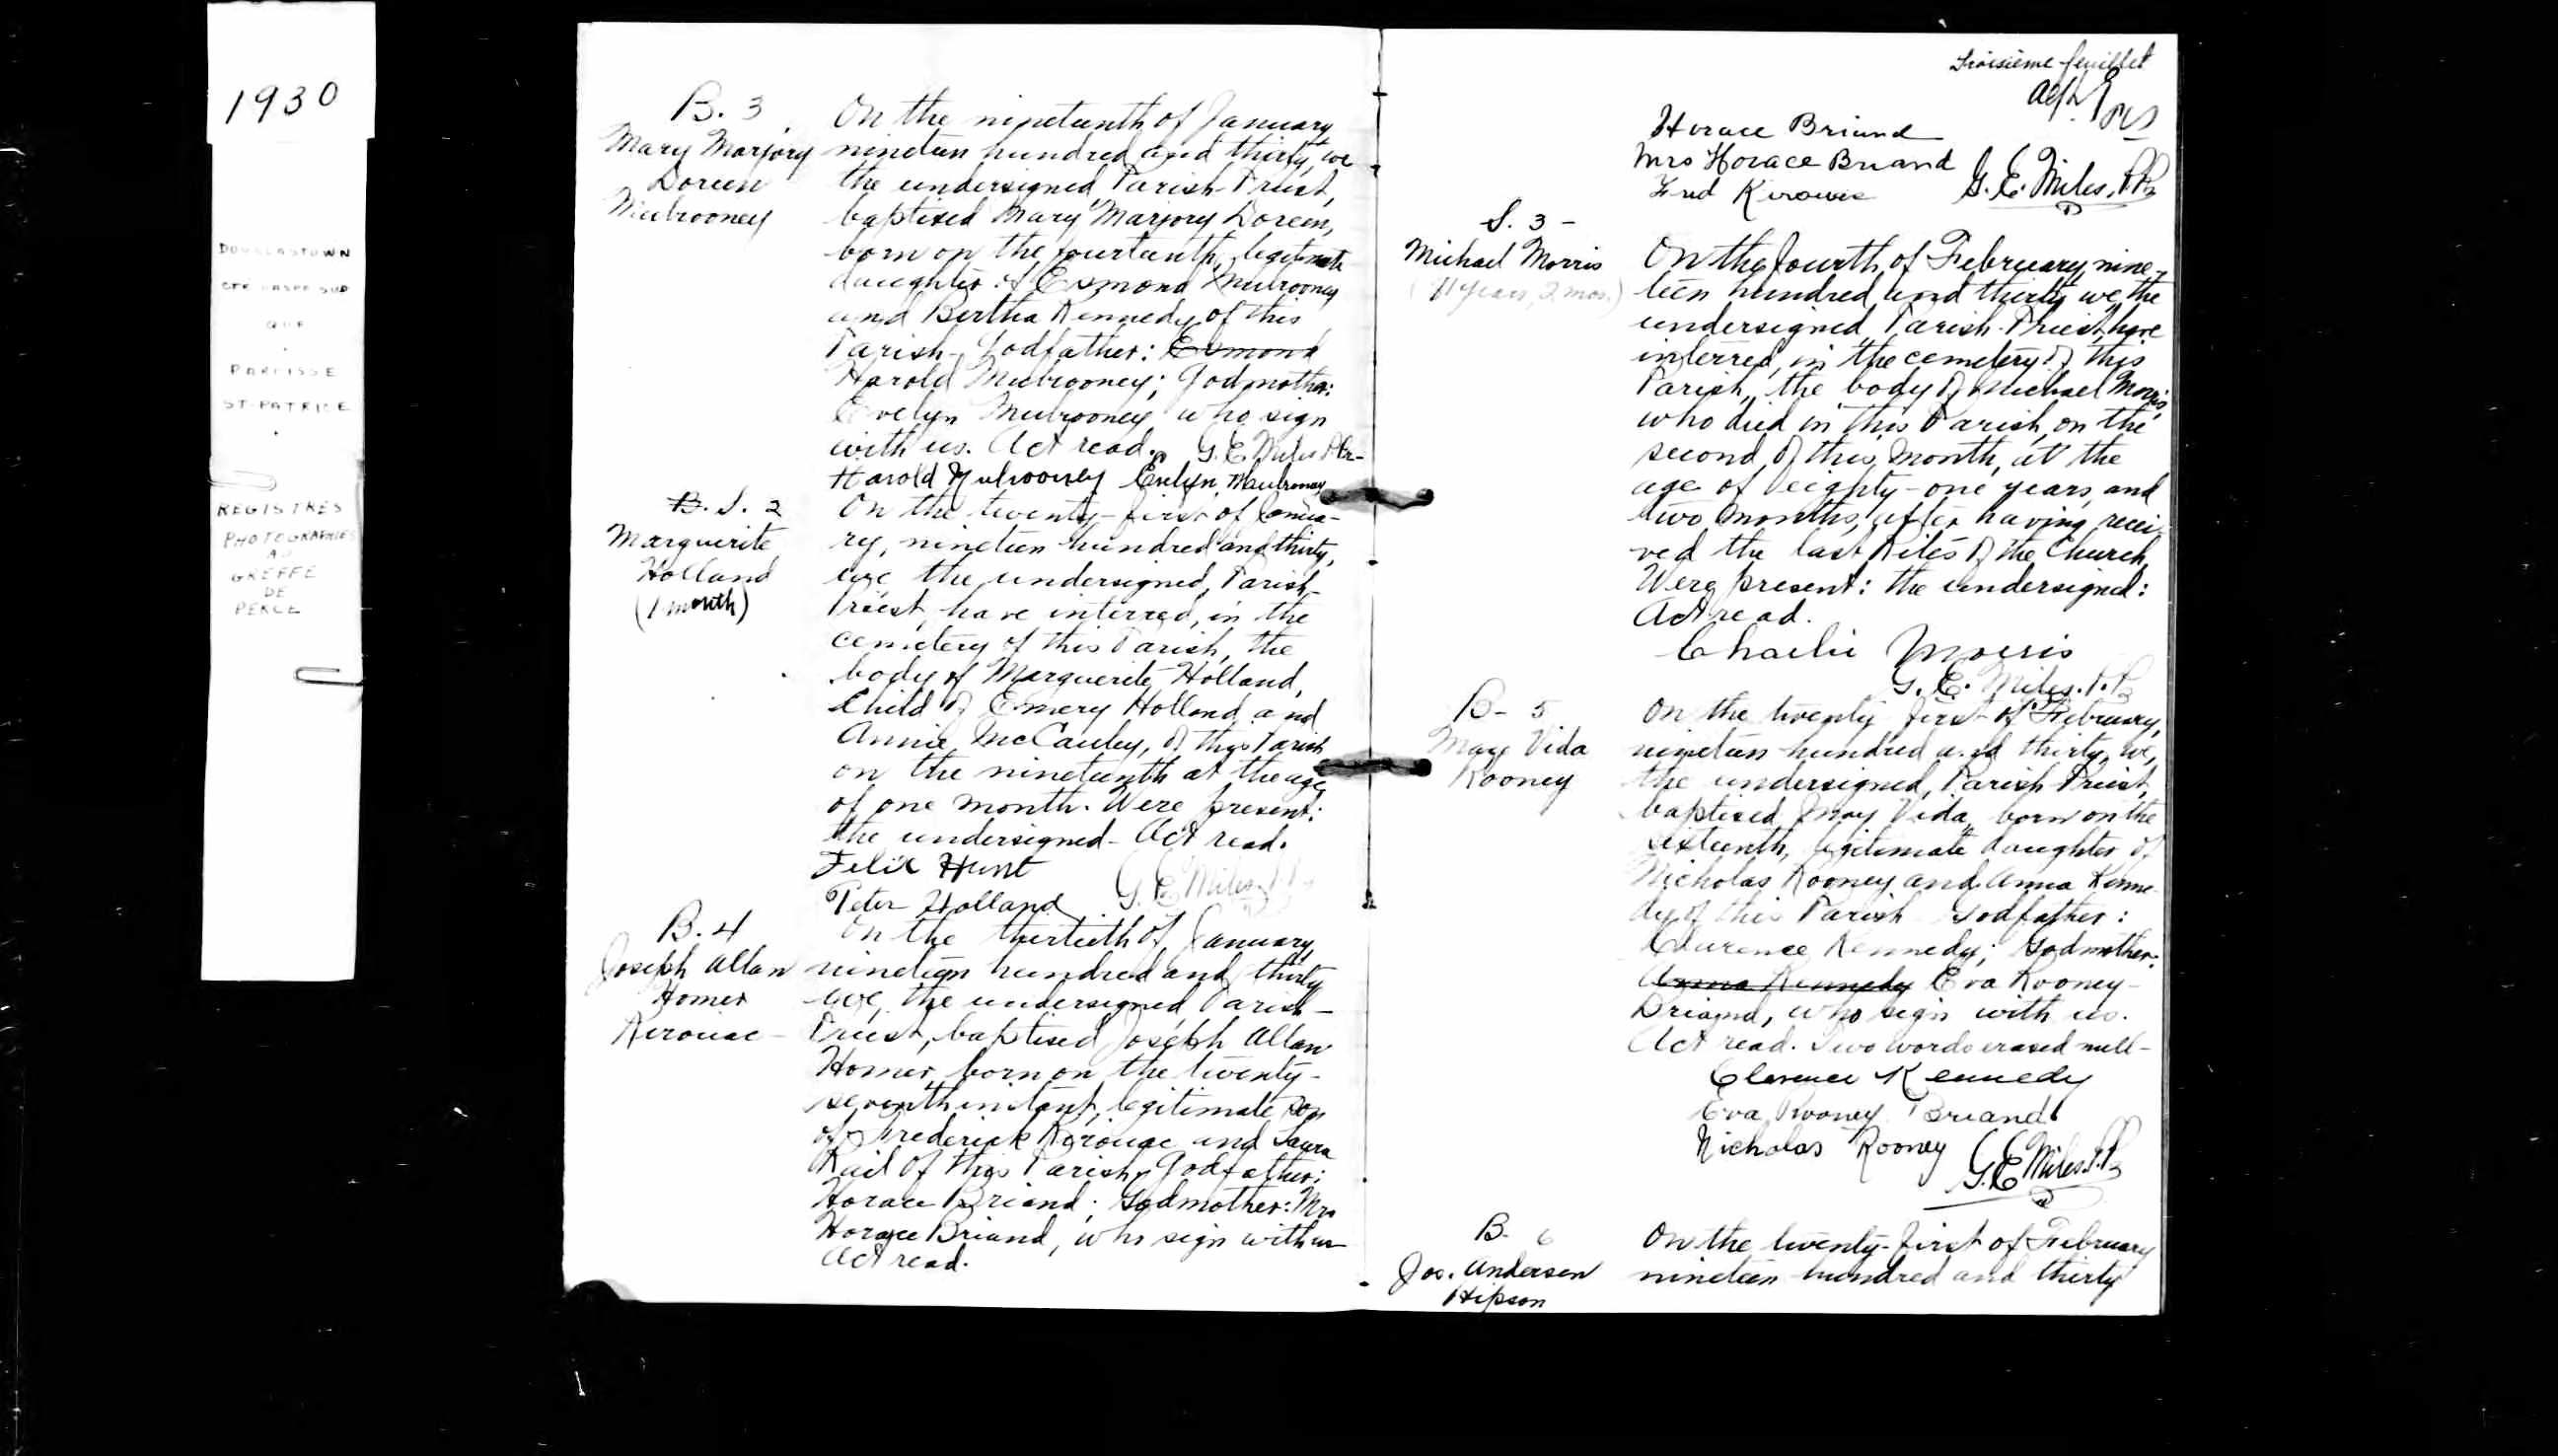 1930
DOUGLASTOWN
CTÉ GASPÉ SUD
QUÉ
PAROISSE
ST-PATRICE
REGISTRES
PHOTOGRAPHIÉS
AU
GREFFE
DE
PERCÉ
B. 3
Mary Marjory
Doreen
Mulrooney
On the nineteenth of January
nineteen hundred and thirty, we
the undersigned Parish-Priest,
baptised Mary Marjory Doreen,
born on the fourteenth, legitimate
daughter of Esmond Mulrooney
and Bertha Kennedy of this
Parish- Godfather: Esmond
Harold Mulrooney; Godmother:
Evelyn Mulrooney who sign
with us. Act read. G. E. Miles Ptr-
Harold Mulrooney Evelyn Mulrooney
B. S. 2
Marguerite
Holland
(1 month)
On the twenty-first of Janua-
ry, nineteen hundred and thirty,
we the undersigned, Parish-
Priest, have interred, in the
cemetery of this Parish, the
body of Marguerite Holland,
Child of Emery Holland and
Annie McCauley, of this Parish
on the nineteenth at the age
of one month. Were present:
the undersigned- Act read.
Felix Hunt
Peter Holland G. E. Miles
B. 4
Joseph Allan
Homer
Kerouac-
On the thirtieth of January,
nineteen hundred and thirty
we, the undersigned Parish-
Priest, baptised Joseph Allan
Homer, born on the twenty-
seventh instant, legitimate son
of Frederick Kerouac and Laura
Rail of this Parish, Godfather:
Horace Briand; Godmother: Mrs
Horace Briand, who sign with us
Act read.
Troisième feuillet
Horace Briand
Mrs Horace Briand G. E. Miles, P.P.
Fred Kirouac
S. 3 -
Michael Morris
(81 years, 2 mos.)
On the fourth of February, nine-
teen hundred and thirty we, the
undersigned, Parish-Priest, have
interred, in the cemetery of this
Parish, the body of Michael Morris,
who died in this Parish, on the
second of this month, at the
age of eighty-one years, and
two months, after having recei-
ved the last Rites of the Church,
Were present: the undersigned:
Act read.
Charlie Morris
G. E. Miles. P.P.
B- 5
May Vida
Rooney
On the twenty first of February,
nineteen hundred and thirty, we,
the undersigned, Parish Priest,
baptised May Vida, born on the
sixteenth, legitimate daughter of
Nicholas Rooney and Anna Kenne-
dy of this Parish Godfather:
Clarence Kennedy; Godmother:
Anna Kennedy Eva Rooney-
Briand, who sign with us.
Act read. Two words erased null-
Clarence Kennedy
Eva Rooney Briand
Nicholas Rooney G. E. Miles P.P.
B. 6
Jos. Anderson
Hipson
On the twenty-first of February
nineteen hundred and thirty